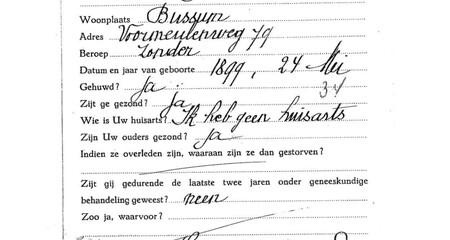 Woonplaats Bussum
Adres Voormeulenweg 79
Beroep zonder
Datum en jaar van geboorte 1899, 24 Mei
Gehuwd? Ja 34
Zijt ge gezond? Ja
Wie is Uw huisarts? Ik heb geen huisarts
Zijn Uw ouders gezond? Ja
Indien ze overleden zijn, waaraan zijn ze dan gestorven?
Zijt gij gedurende de laatste twee jaren onder geneeskundige
behandeling geweest? neen
Zoo ja, waarvoor?